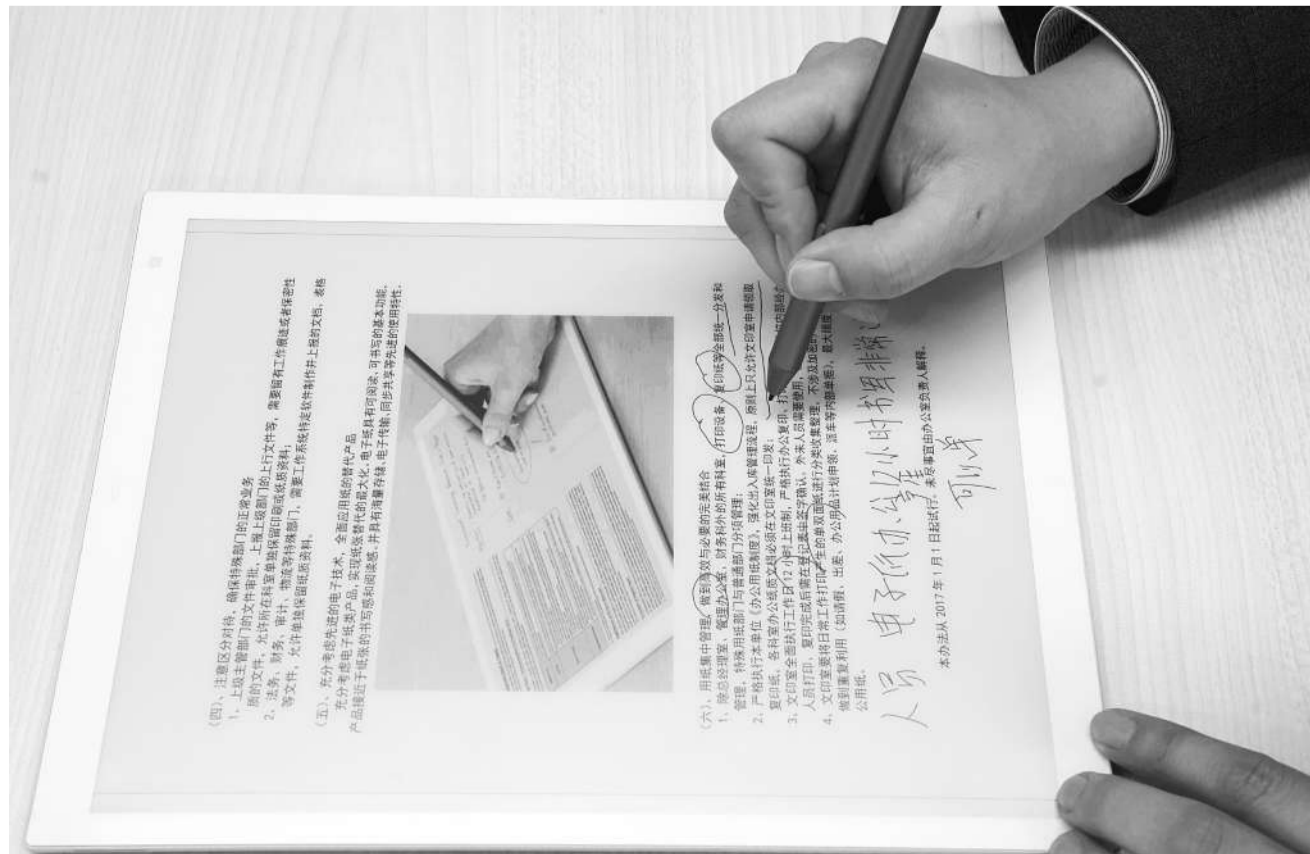 (四)、注意区分对待，确保特殊部门的正常业务
1、上级主管部门的文件审批，上报上级部门的上行文件等，需要留有工作痕迹或者保密性
质的文件，允许所在科室单独保留印刷或纸质资料；
2、法务、财务、审计、物流等特殊部门，需要工作系统特定软件制作并上报的文档，表格
等文件，允许单独保留纸质资料。
(五)、充分考虑先进的电子技术，全面应用纸的替代产品
充分考虑电子纸类产品，实现纸张替代的最大化，电子纸具有可阅读、可书写的基本功能，
产品接近于纸张的书写感和阅读感，并具有海量存储、电子传输、同步共享等先进的使用特性。
(六)、用纸集中管理，做到高效与必要的完美结合
1、除总经理室、管理办公室、财务科外的所有科室，打印设备、复印纸等全部统一分发和
管理，特殊用纸部门与普通部门分项管理；
2、严格执行本单位《办公用纸制度》，强化出入库管理流程，原则上只允许文印室申请领取
复印纸，各科室办公纸质文档必须在文印室统一印发；
3、文印室全面执行工作日12小时上班制，严格执行办公复印、打
人员打印，复印完成后需在登记表中签字确认，外来人员需要使用，
4、文印室要将日常工作打印产生的单双面纸进行分类收集整理，不涉及加密的
做到重复利用（如请假、出差、办公用品计划申领、派车等内部单据），最大插度
公用纸。
人员 电子纸办公
本办法从2017年1月1日起试行，未尽事宜由办公室负责人解释。